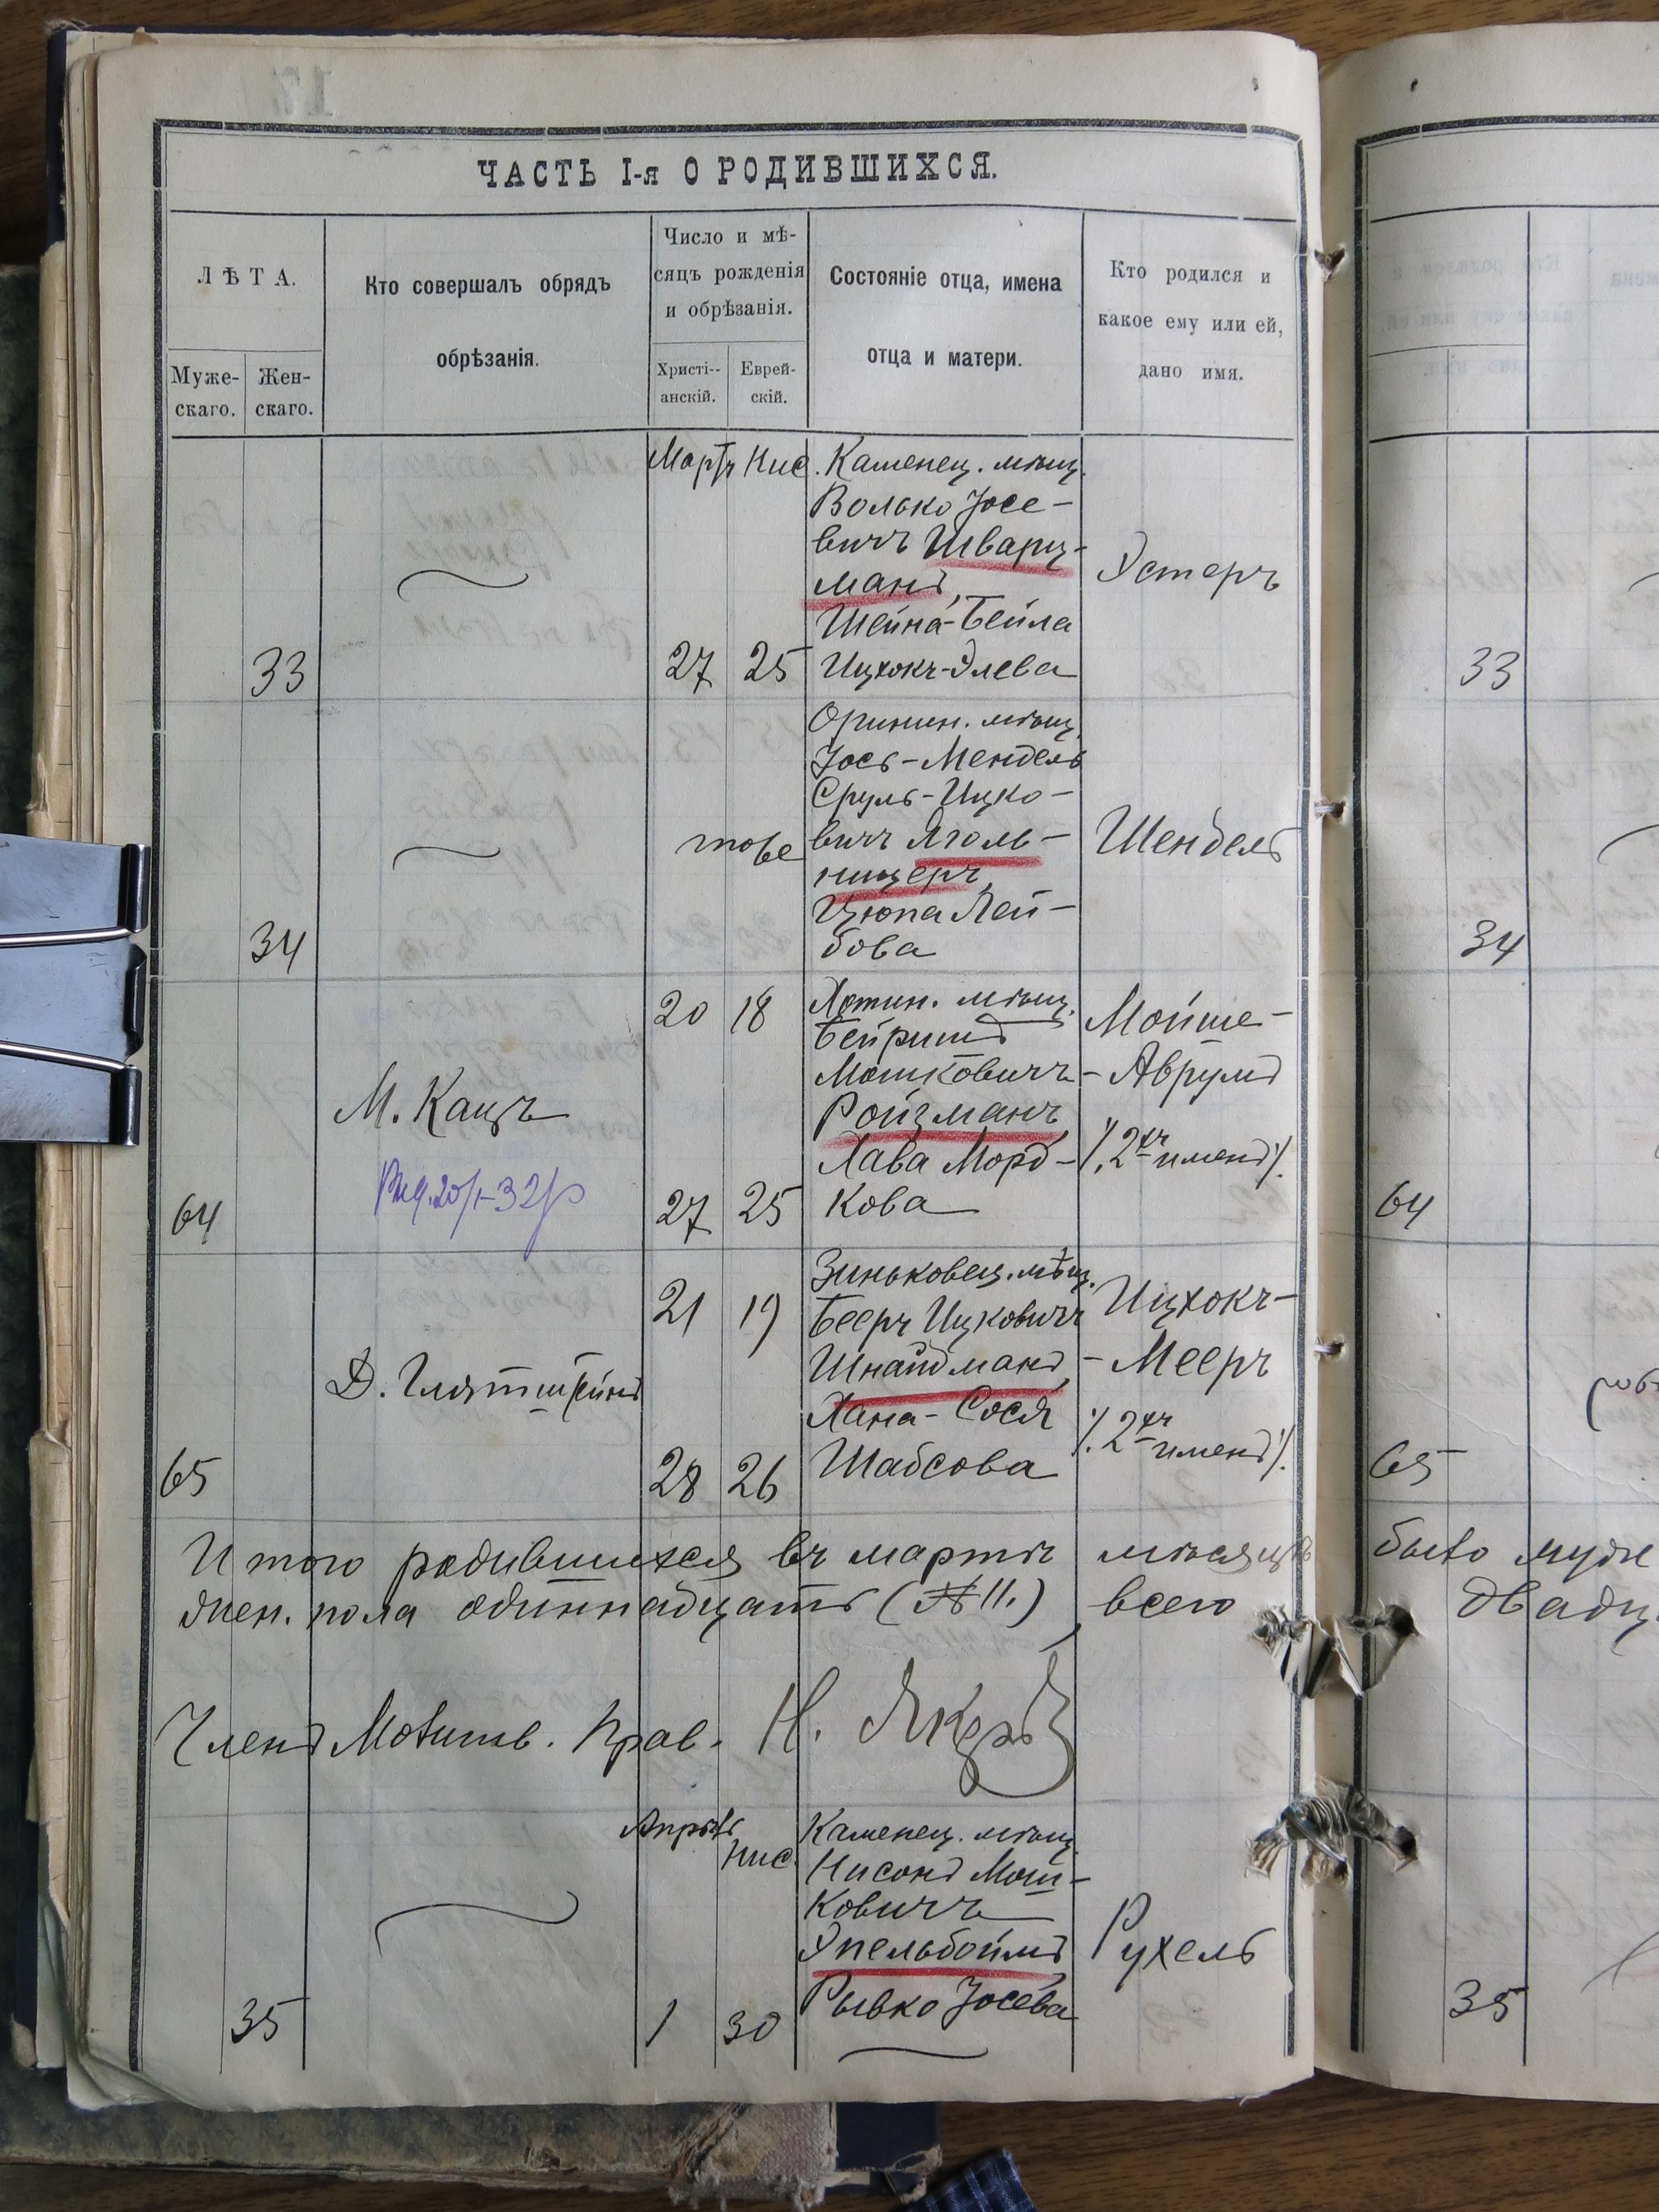 ЧАСТЬ I-я О РОДИВШИХСЯ.
ЛѢТА.
Муже-
скаго.
Жен-
скаго.
Кто совершалъ обрядъ
обрѣзанія.
Число и мѣ-
сяцъ рожденія
и обрѣзанія.
Христі-
анскій.
Еврей-
скій.
Состояніе отца, имена
отца и матери.
Кто родился и
какое ему или ей,
дано имя.
33
Мартъ Нис.
27 25
Каменец. мѣщ.
Волько Іосе-
вичъ Шварц-
манъ,
Шейна-Бейла
Ицхокъ-Элева
Эстеръ
34
тоже
Оринин. мѣщ.
Іось-Мендель
Сруль-Ицко-
вичъ Яголь-
ницеръ,
Цюпа Лей-
бова
Шендель
64
М. Кацъ
20 18
27 25
Хотин. мѣщ.
Бейришъ
Мошковичъ
Ройзманъ,
Хава Морд-
кова
Мойше-
-Аврумъ
/.2хъ именъ/.
65
Д. Глятштейнъ
21 19
28 26
Зиньковец. мѣщ.
Бееръ Ицковичъ
Шнайдманъ,
Хана-Сося
Шабсова
Ицхокъ-
-Мееръ
/.2хъ именъ/.
Итого родившихся въ мартѣ мѣсяцѣ
жен. пола одиннадцать (№ 11.), всего
Членъ Молитв. Прав. Н. Якеръ
35
Апрѣль
Нис.
1 30
Каменец. мѣщ.
Нисонъ Мош-
ковичъ
Эпельбоймъ,
Рывко Іосева
Рухель
33
34
64
65
было муж
двадц
35